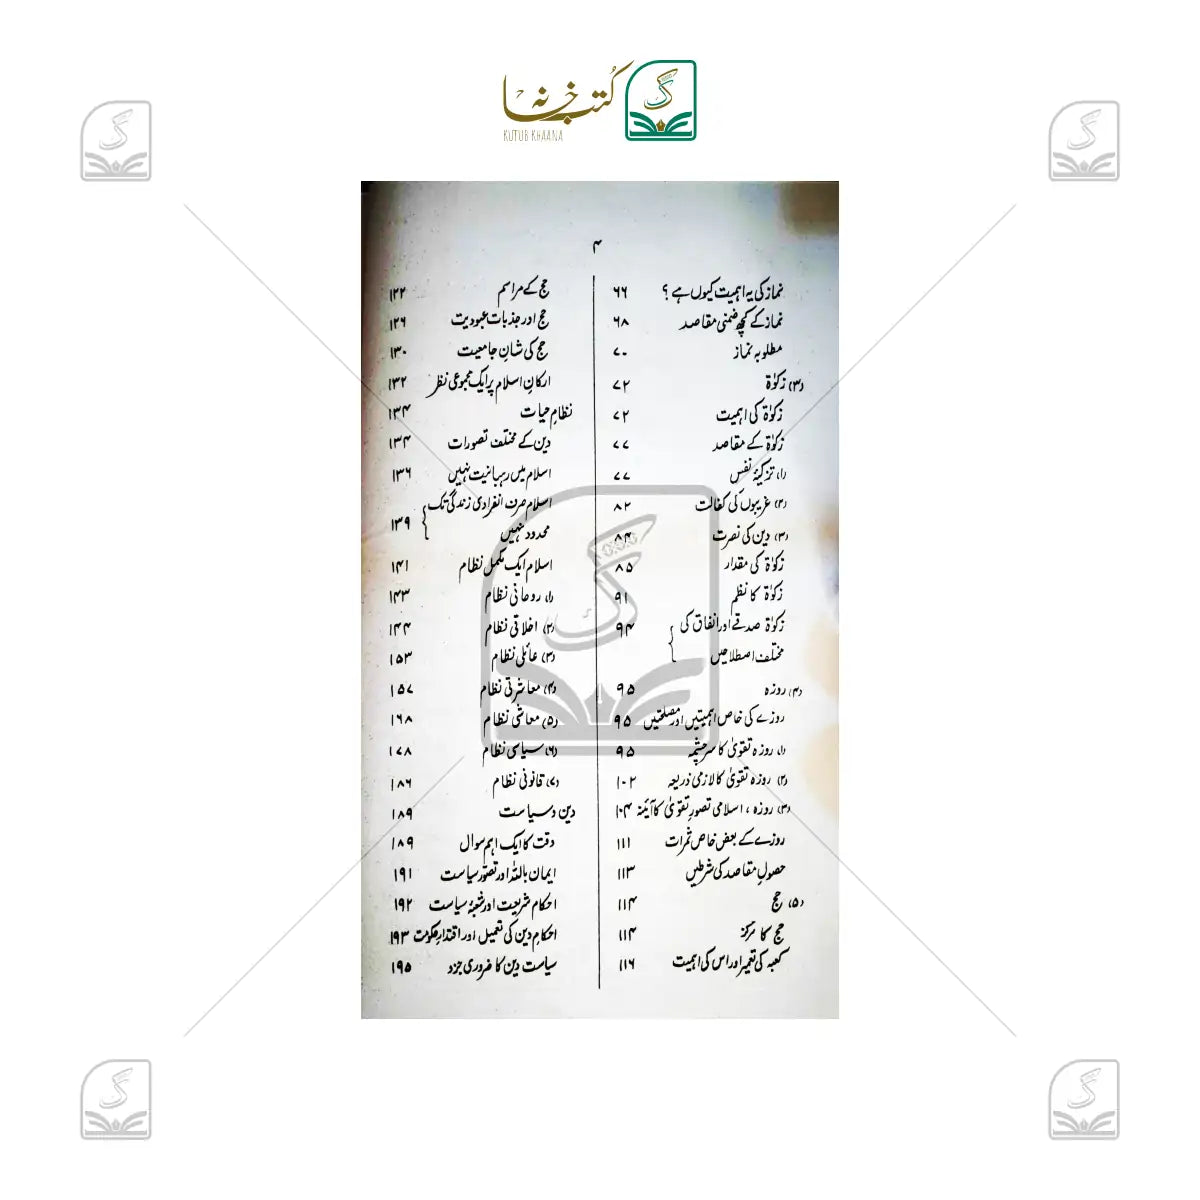 کتب خانہ
KUTUB KHAANA
۴
نماز کی یہ اہمیت کیوں ہے؟ ۶۶
نماز کے کچھ ضمنی مقاصد ۶۸
مطلوبہ نماز ۷۰
(۳) زکوٰۃ ۷۲
زکوٰۃ کی اہمیت ۷۲
زکوٰۃ کے مقاصد ۷۷
(۱) تزکیۂ نفس ۷۷
(۲) غریبوں کی کفالت ۸۲
(۳) دین کی نصرت ۸۴
زکوٰۃ کی مقدار ۸۵
زکوٰۃ کا نظم ۹۱
زکوٰۃ صدقے اور انفاق کی
مختلف اصطلاحیں ۹۴
(۴) روزہ ۹۵
روزے کی خاص اہمیتیں اور مصلحتیں ۹۵
(۱) روزہ تقویٰ کا سرچشمہ ۹۵
(۲) روزہ تقویٰ کا لازمی ذریعہ ۱۰۲
(۳) روزہ، اسلامی تصورِ تقویٰ کا آئینہ ۱۰۴
روزے کے بعض خاص ثمرات ۱۱۱
حصولِ مقاصد کی شرطیں ۱۱۳
(۵) حج ۱۱۴
حج کا مرکز ۱۱۴
کعبہ کی تعمیر اور اس کی اہمیت ۱۱۶
حج کے مراسم ۱۲۲
حج اور جذباتِ عبودیت ۱۲۶
حج کی شانِ جامعیت ۱۳۰
ارکانِ اسلام پر ایک مجموعی نظر ۱۳۲
نظامِ حیات ۱۳۴
دین کے مختلف تصورات ۱۳۴
اسلام میں رہبانیت نہیں ۱۳۶
اسلام صرف انفرادی زندگی تک
محدود نہیں ۱۳۹
اسلام ایک مکمل نظام ۱۴۱
(۱) روحانی نظام ۱۴۳
(۲) اخلاقی نظام ۱۴۴
(۳) عائلی نظام ۱۵۳
(۴) معاشرتی نظام ۱۵۷
(۵) معاشی نظام ۱۶۸
(۶) سیاسی نظام ۱۷۸
(۷) قانونی نظام ۱۸۶
دین و سیاست ۱۸۹
وقت کا ایک اہم سوال ۱۸۹
ایمان باللہ اور تصوّرِ سیاست ۱۹۱
احکامِ شریعت اور شعبۂ سیاست ۱۹۲
احکامِ دین کی تعمیل اور اقتدارِ حکومت ۱۹۳
سیاست دین کا ضروری جزو ۱۹۵